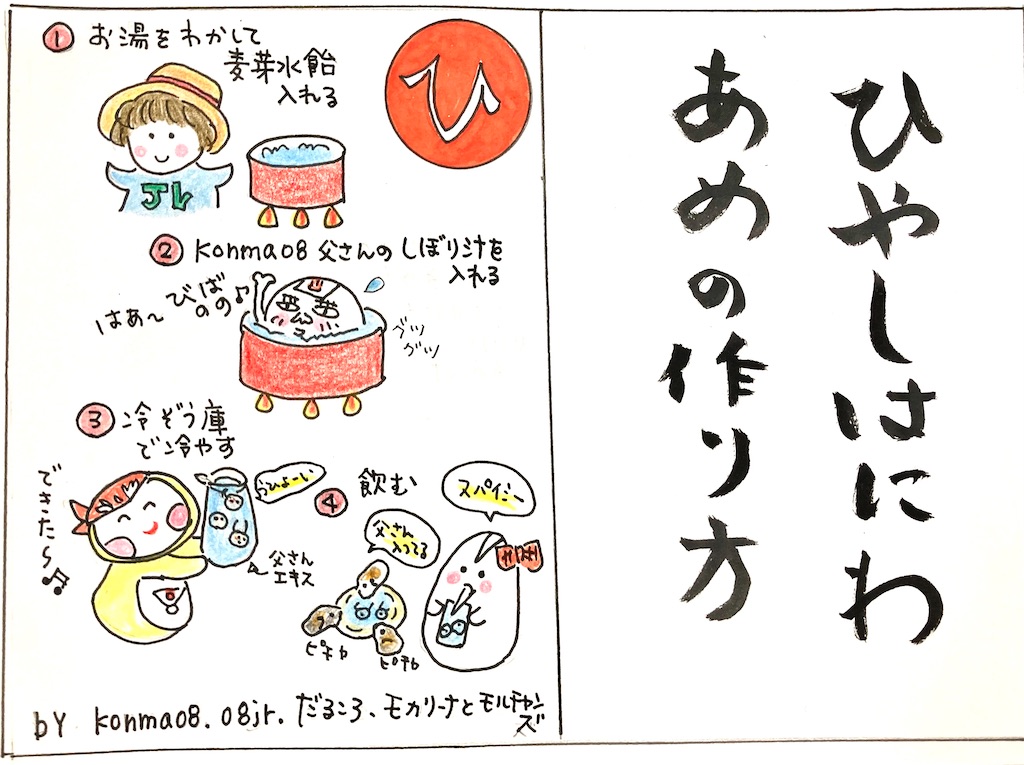 ひやしはにわ
あめの作り方
ひ
① お湯をわかして
麦芽水飴
入れる
Jr
② konma08 父さんのしぼり汁を
入れる
はあ〜
びばのの♪
グツ
グツ
③ 冷ぞう庫
で冷やす
できたら〜♫
うひょーい
父さん
エキス
④ 飲む
スパイシー
父さん
入ってる
ピチャ
ピチャ
by konma08.08jr.だるころ、モカリーナとモルチャンズ